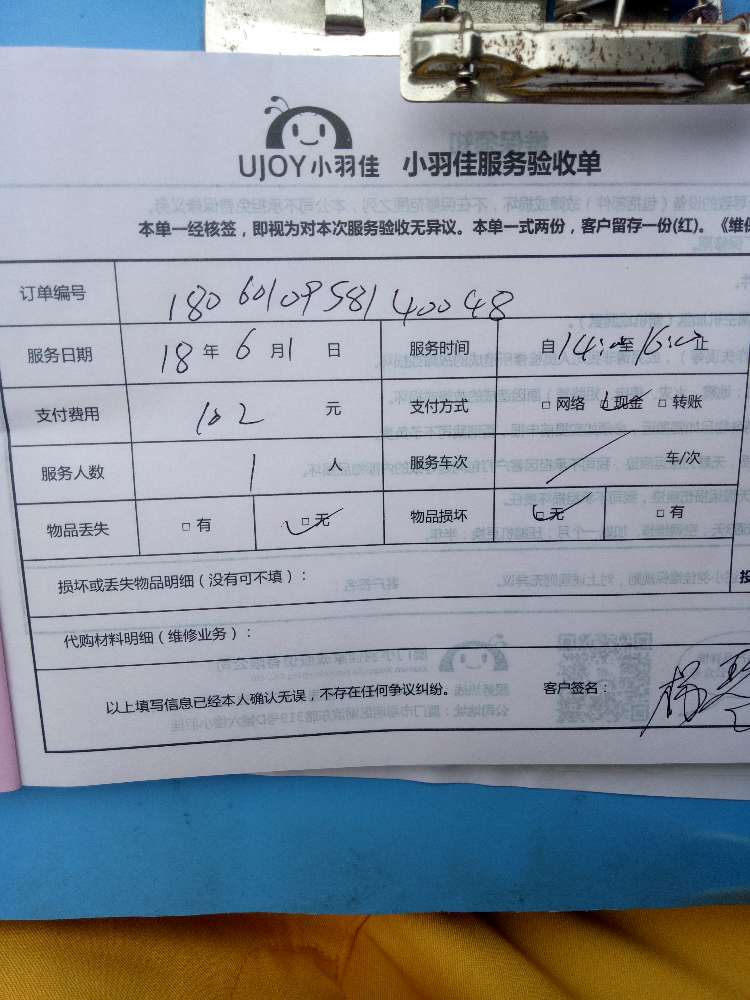 UJOY小羽佳 小羽佳服务验收单
本单一经核签，即视为对本次服务验收无异议。本单一式两份，客户留存一份(红)。《维保
订单编号 1806010958140048
服务日期 18 年 6 月 1 日 服务时间 自 14:00 至 16:00 止
支付费用 102 元 支付方式 □ 网络 □ 现金 □ 转账
服务人数 1 人 服务车次 车/次
物品丢失 □ 有 □ 无 物品损坏 □ 无 □ 有
损坏或丢失物品明细（没有可不填）：
代购材料明细（维修业务）：
以上填写信息已经本人确认无误，不存在任何争议纠纷。 客户签名： 杨